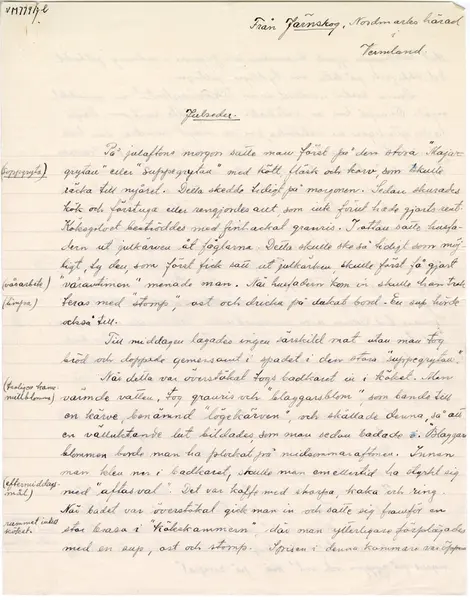 VM779/2
Från Järnskog, Nordmarks härad
i
Vermland.
Julseder.
På julaftons morgon satte man först på den stora "Stajar-
(Soppgryta) grytan" eller "suppegrytan" med kött, fläsk och korv, som skulle
räcka till nyåret. Detta skedde tidigt på morgonen. Sedan skurades
kök och förstuga eller rengjordes allt som inte förut hade gjorts rent.
Köksgolvet beströddes med fint ackat granris. I ottan satte husfa-
dern ut julkärven åt fåglarna. Detta skulle ske så tidigt som möj-
ligt, ty den som först fick satt ut julkärven skulle först få gjort
(vårarbete) "våravinnen" menade man. När husfadern kom in skulle han trak-
(limpa) teras med "stomp", ost och dricka på dukat bord. En sup hörde
också till.
Till middagen lagades ingen särskild mat utan man tog
bröd och doppade gemensamt i spadet i den stora "suppegrytan".
När detta var överstökat togs badkaret in i köket. Man
värmde vatten, tog granris och "blaggarsblom", som bands till
en kärve, benämnd "lögekärven", och skållade denna, så att
en välluktande lut bildades som man sedan badade i. "Blaggar-
blommen borde man ha plockat på midsommaraftonen. Innan
man klev ner i badkaret, skulle man emellertid ha styrkt sig
(eftermiddags-
mål) med "aftasval". Det var kaffe med skorpa, kaka och ring.
När badet var överstökat gick man in och satte sig framför en
(rummet intill
köket) stor brasa i "kökskammern", där man ytterligare förplägades
med en sup, ost och stomp. Spisen i denna kammare var öppen